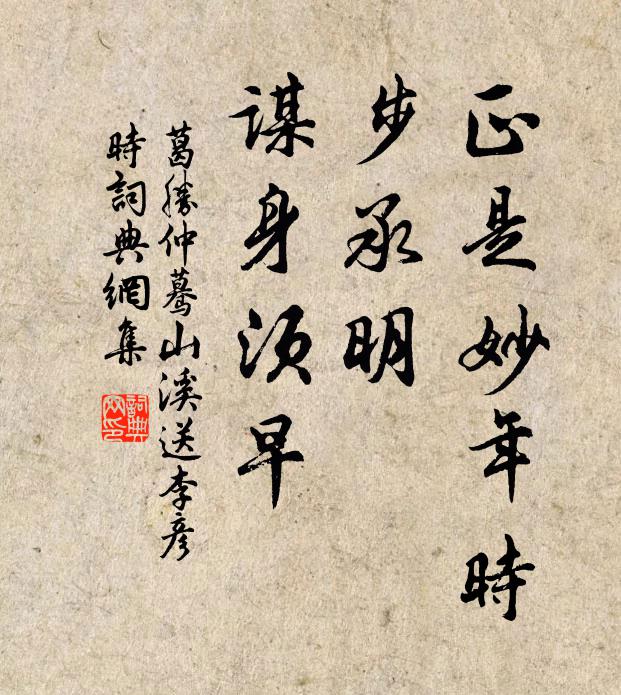 正是妙年時
步承明
謀身須早
葛勝仲驀山溪送李彥
時詞典網集
詞典網印